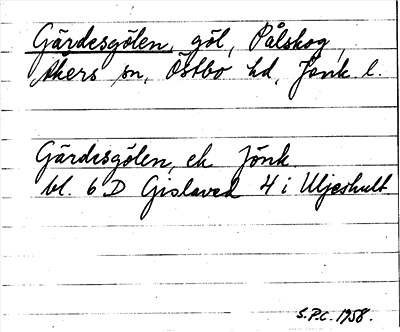 Gärdesgölen, göl, Pålskog,
Åkers sn, Östbo hd, Jönk. l.
Gärdesgölen, ek Jönk.
bl. 6 D Gislaved 4 i Uljeshult
S.P.C. 1958.